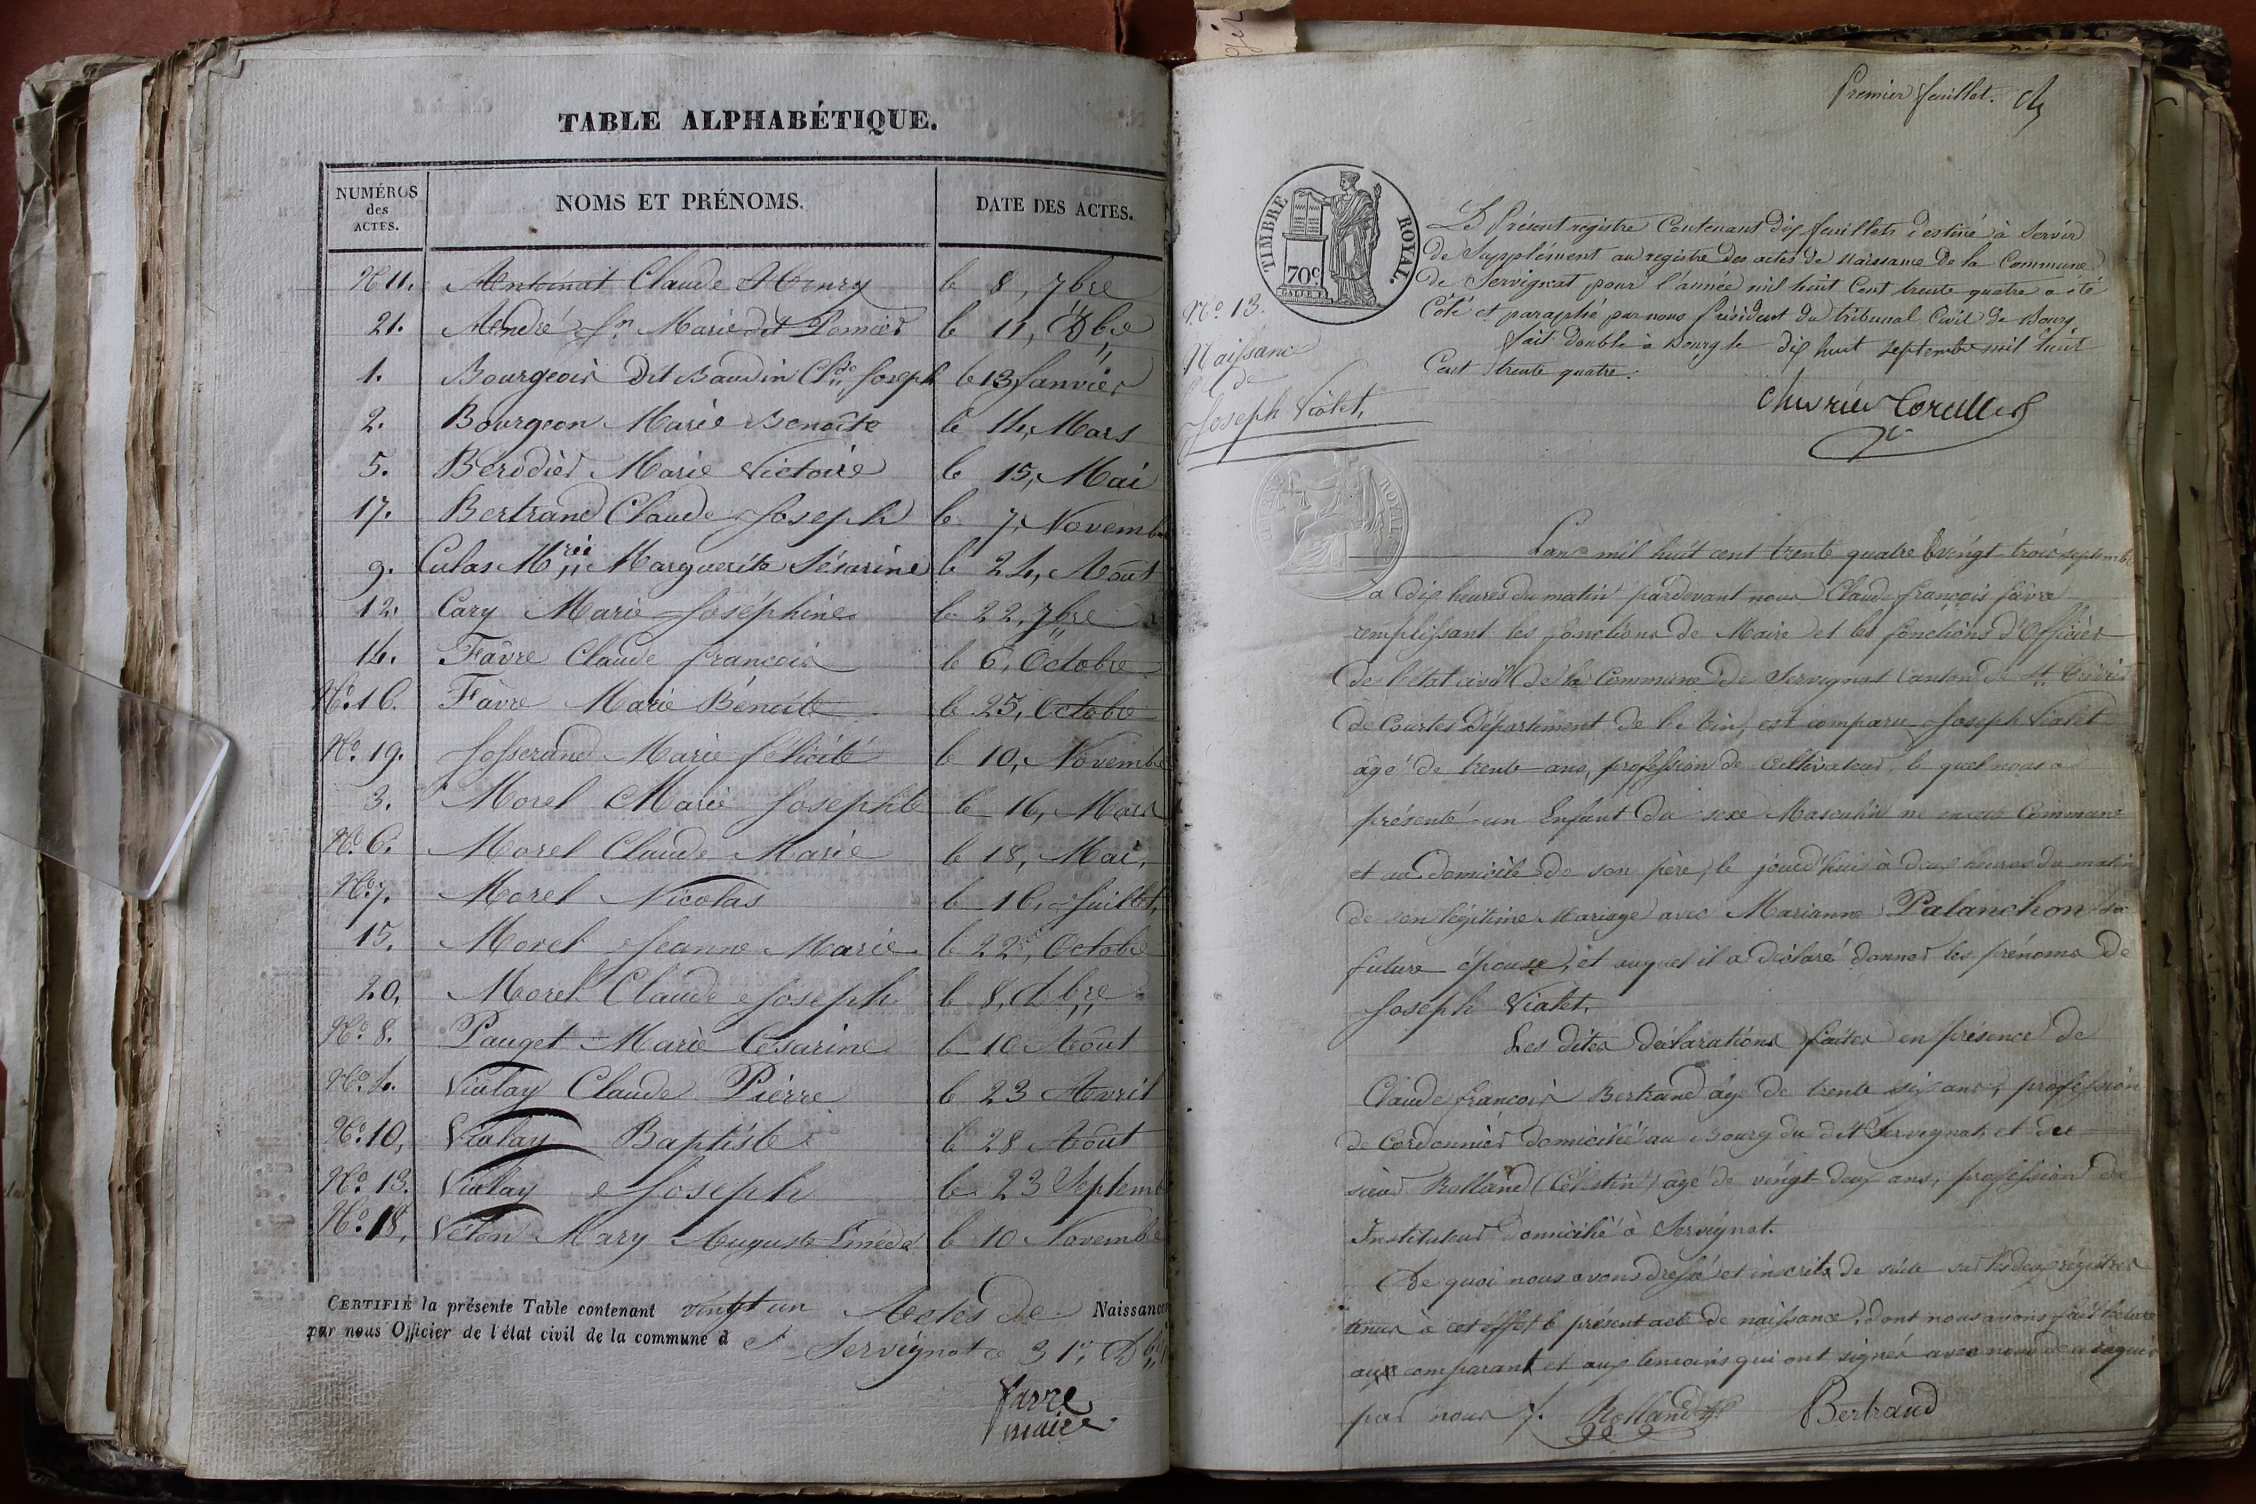 TABLE ALPHABÉTIQUE.
NUMÉROS des ACTES. NOMS ET PRÉNOMS. DATE DES ACTES.
N 11. Antoinat Claude Henry le 8, 7bre
21. André Marie dit Pomier le 11, Dbre
1. Bourgeois dit Baudin Cl.de Joseph le 13 Janvier
2. Bourgeon Marie Benoîte le 14, Mars
5. Berodier Marie Victoire le 15, Mai
17. Bertrand Claude Joseph le 7, Novemb
9. Culas M.rie Marguerite Sésarine le 24, Août
12. Cary Marie Joséphine le 22, 7bre
14. Favre Claude françois le 6, Octobre
N.o 16. Favre Marie Bénoite le 25, Octobre
N.o 19. Josserand Marie félicité le 10, Novemb
3. Morel Marie Josephte le 16, Mars
N.o 6. Morel Claude Marie le 18, Mai,
N.o 7. Morel Nicolas le 16, Juillet,
15. Morel Jeanne Marie le 22, Octobre
20, Morel Claude Joseph le 8, dbre
N.o 8. Pauget Marie Césarine le 10 Août
N.o 4. Vialay Claude Pièrre le 23 Avril
N.o 10, Vialay Baptiste le 28 Août
N.o 13. Vialay Joseph le 23 Septemb
N.o 18, Véton Mary Auguste le 10 Novembre
CERTIFIÉ la présente Table contenant vingt un Actes de Naissances
par nous Officier de l'état civil de la commune d e Servignat ce 31, Dbre
Favre
maire
Premier feuillet.
TIMBRE ROYAL.
70c
Le Présent registre Contenant dix feuillets destiné à Servir
de Supplément au registre des actes de naissance de la Commune
de Servignat pour l'année mil huit Cent trente quatre a été
Côté et paraphé par nous Président du tribunal Civil de Bourg
fait double à Bourg le dix huit septembre mil huit
Cent trente quatre.
N.o 13.
Naissance
de
Joseph Vialet,
ROYAL
L'an mil huit cent trente quatre le vingt trois septembre
à dix heures du matin pardevant nous Claude françois favre
remplissant les fonctions de Maire et les fonctions d'Officier
de l'état civil de la Commune de Servignat Canton de St. Trivier
de Courtes Département de l'Ain, est comparu Joseph Vialet
âgé de trente ans, profession de Cultivateur, le quel nous a
présenté un Enfant du sexe Masculin né en cette Commune
et au domicile de son père, le jourd'hui à deux heures du matin
de son légitime Mariage avec Marianne Palanchon sa
future épouse, et auquel il a déclaré donner les prénoms de
Joseph Vialet,
Les dites déclarations faites en présence de
Claude françois Bertrand âgé de trente six ans, profession
de Cordonnier domicilié au Bourg du dit Servignat, et du
sieur Rolland (Célestin) âgé de vingt deux ans, profession de
Instituteur domicilié à Servignat.
De quoi nous avons dressé et inscrits de suite sur les deux régistres
tenus à cet effet le présent acte de naissance, dont nous avons fait lecture
aux comparant et aux temoins qui ont signés avec nous de ce requis
par nous. Rolland Bertrand